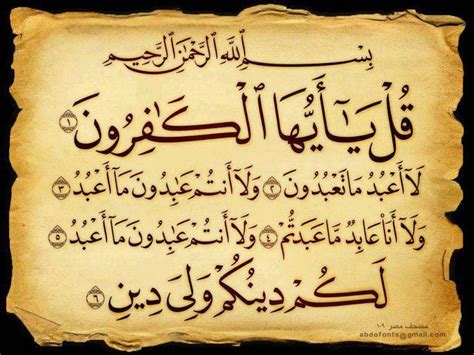 بِسْمِ اللَّهِ الرَّحْمَٰنِ الرَّحِيمِ
قُلْ يَا أَيُّهَا الْكَافِرُونَ ١
لَا أَعْبُدُ مَا تَعْبُدُونَ ٢ وَلَا أَنتُمْ عَابِدُونَ مَا أَعْبُدُ ٣
وَلَا أَنَا عَابِدٌ مَّا عَبَدتُّمْ ٤ وَلَا أَنتُمْ عَابِدُونَ مَا أَعْبُدُ ٥
لَكُمْ دِينُكُمْ وَلِيَ دِينِ ٦
مصحف مصر ١٠٩
abdofonts@gmail.com